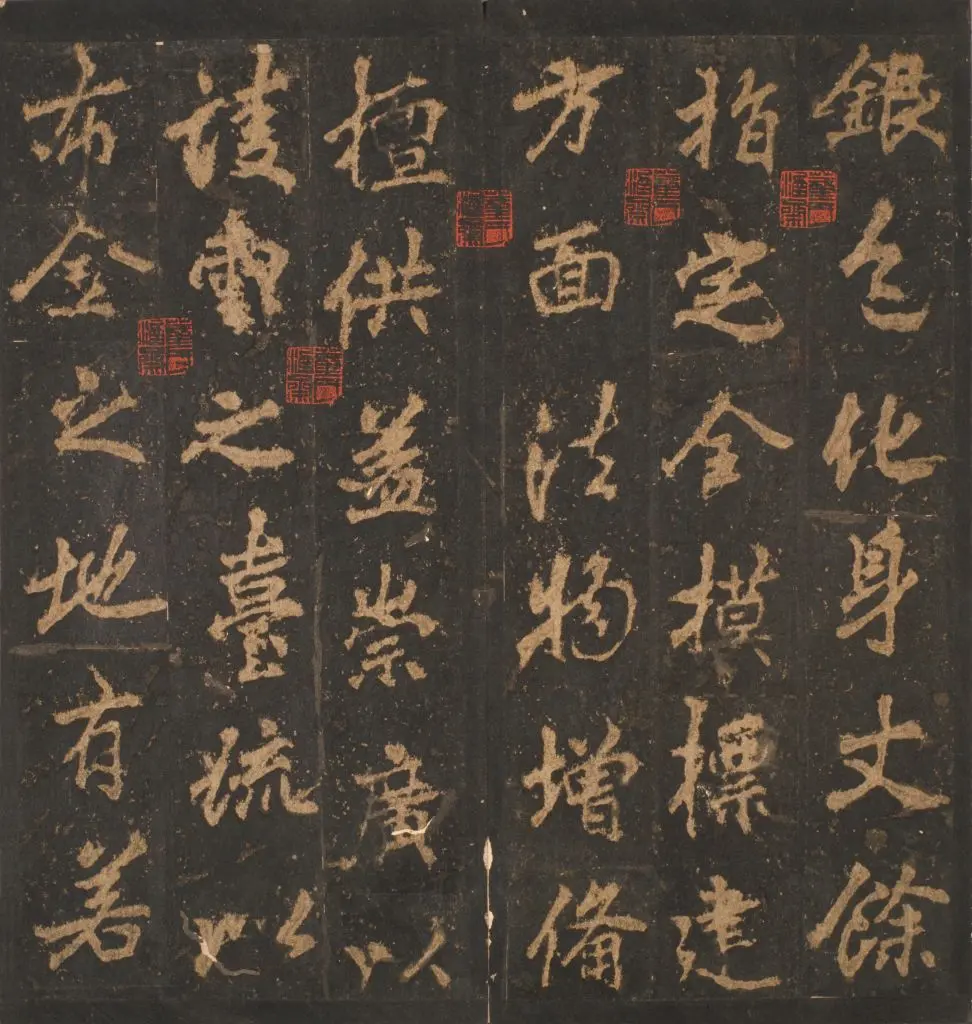 銀色化身丈餘
指定全模標建
方面法物增備
檀供益崇廣以
淩雲之臺疏以
布金之地有若